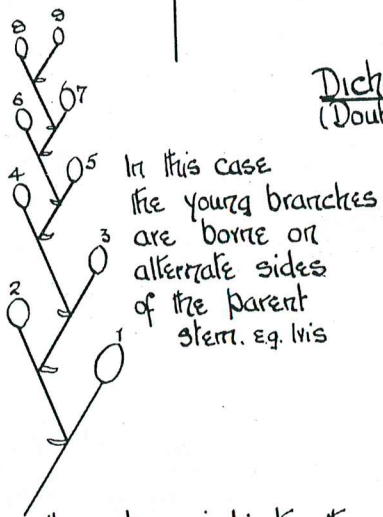 8 9
7
6
Dich
(Doub
5
4
In this case
the young branches
3
are borne on
alternate sides
2
of the parent
1
stem. e.g. Iris